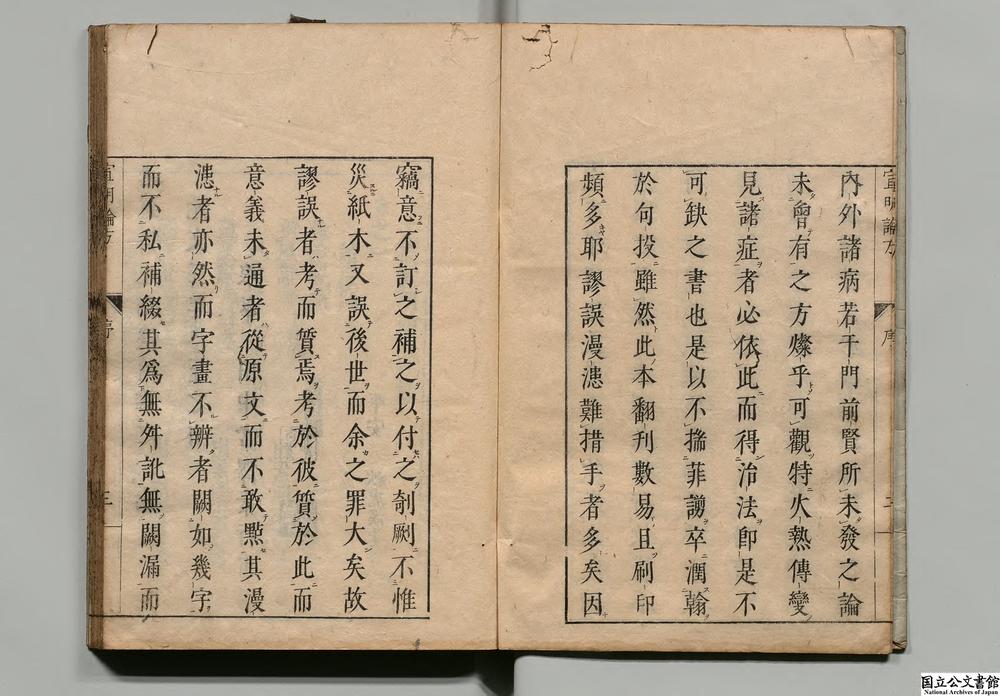 內外諸病若干門前賢所未發之論
未曾有之方燦乎可觀特火熱傳變
見諸症者必依此而得治法卽是不
可缺之書也是以不揣菲謭卒潤翰
於句投雖然此本翻刊數易且刷印
頻多耶謬誤漫漶難措手者多矣因
宣明論方
序
竊意不訂之補之以付之剞劂不惟
災紙木又誤後世而余之罪大矣故
謬誤者考而質焉考於彼質於此而
意義未通者從原文而不敢點其漫
漶者亦然而字畫不辨者闕如幾字
而不私補綴其爲無舛訛無闕漏而
宣明論方
序
三
国立公文書館
National Archives of Japan